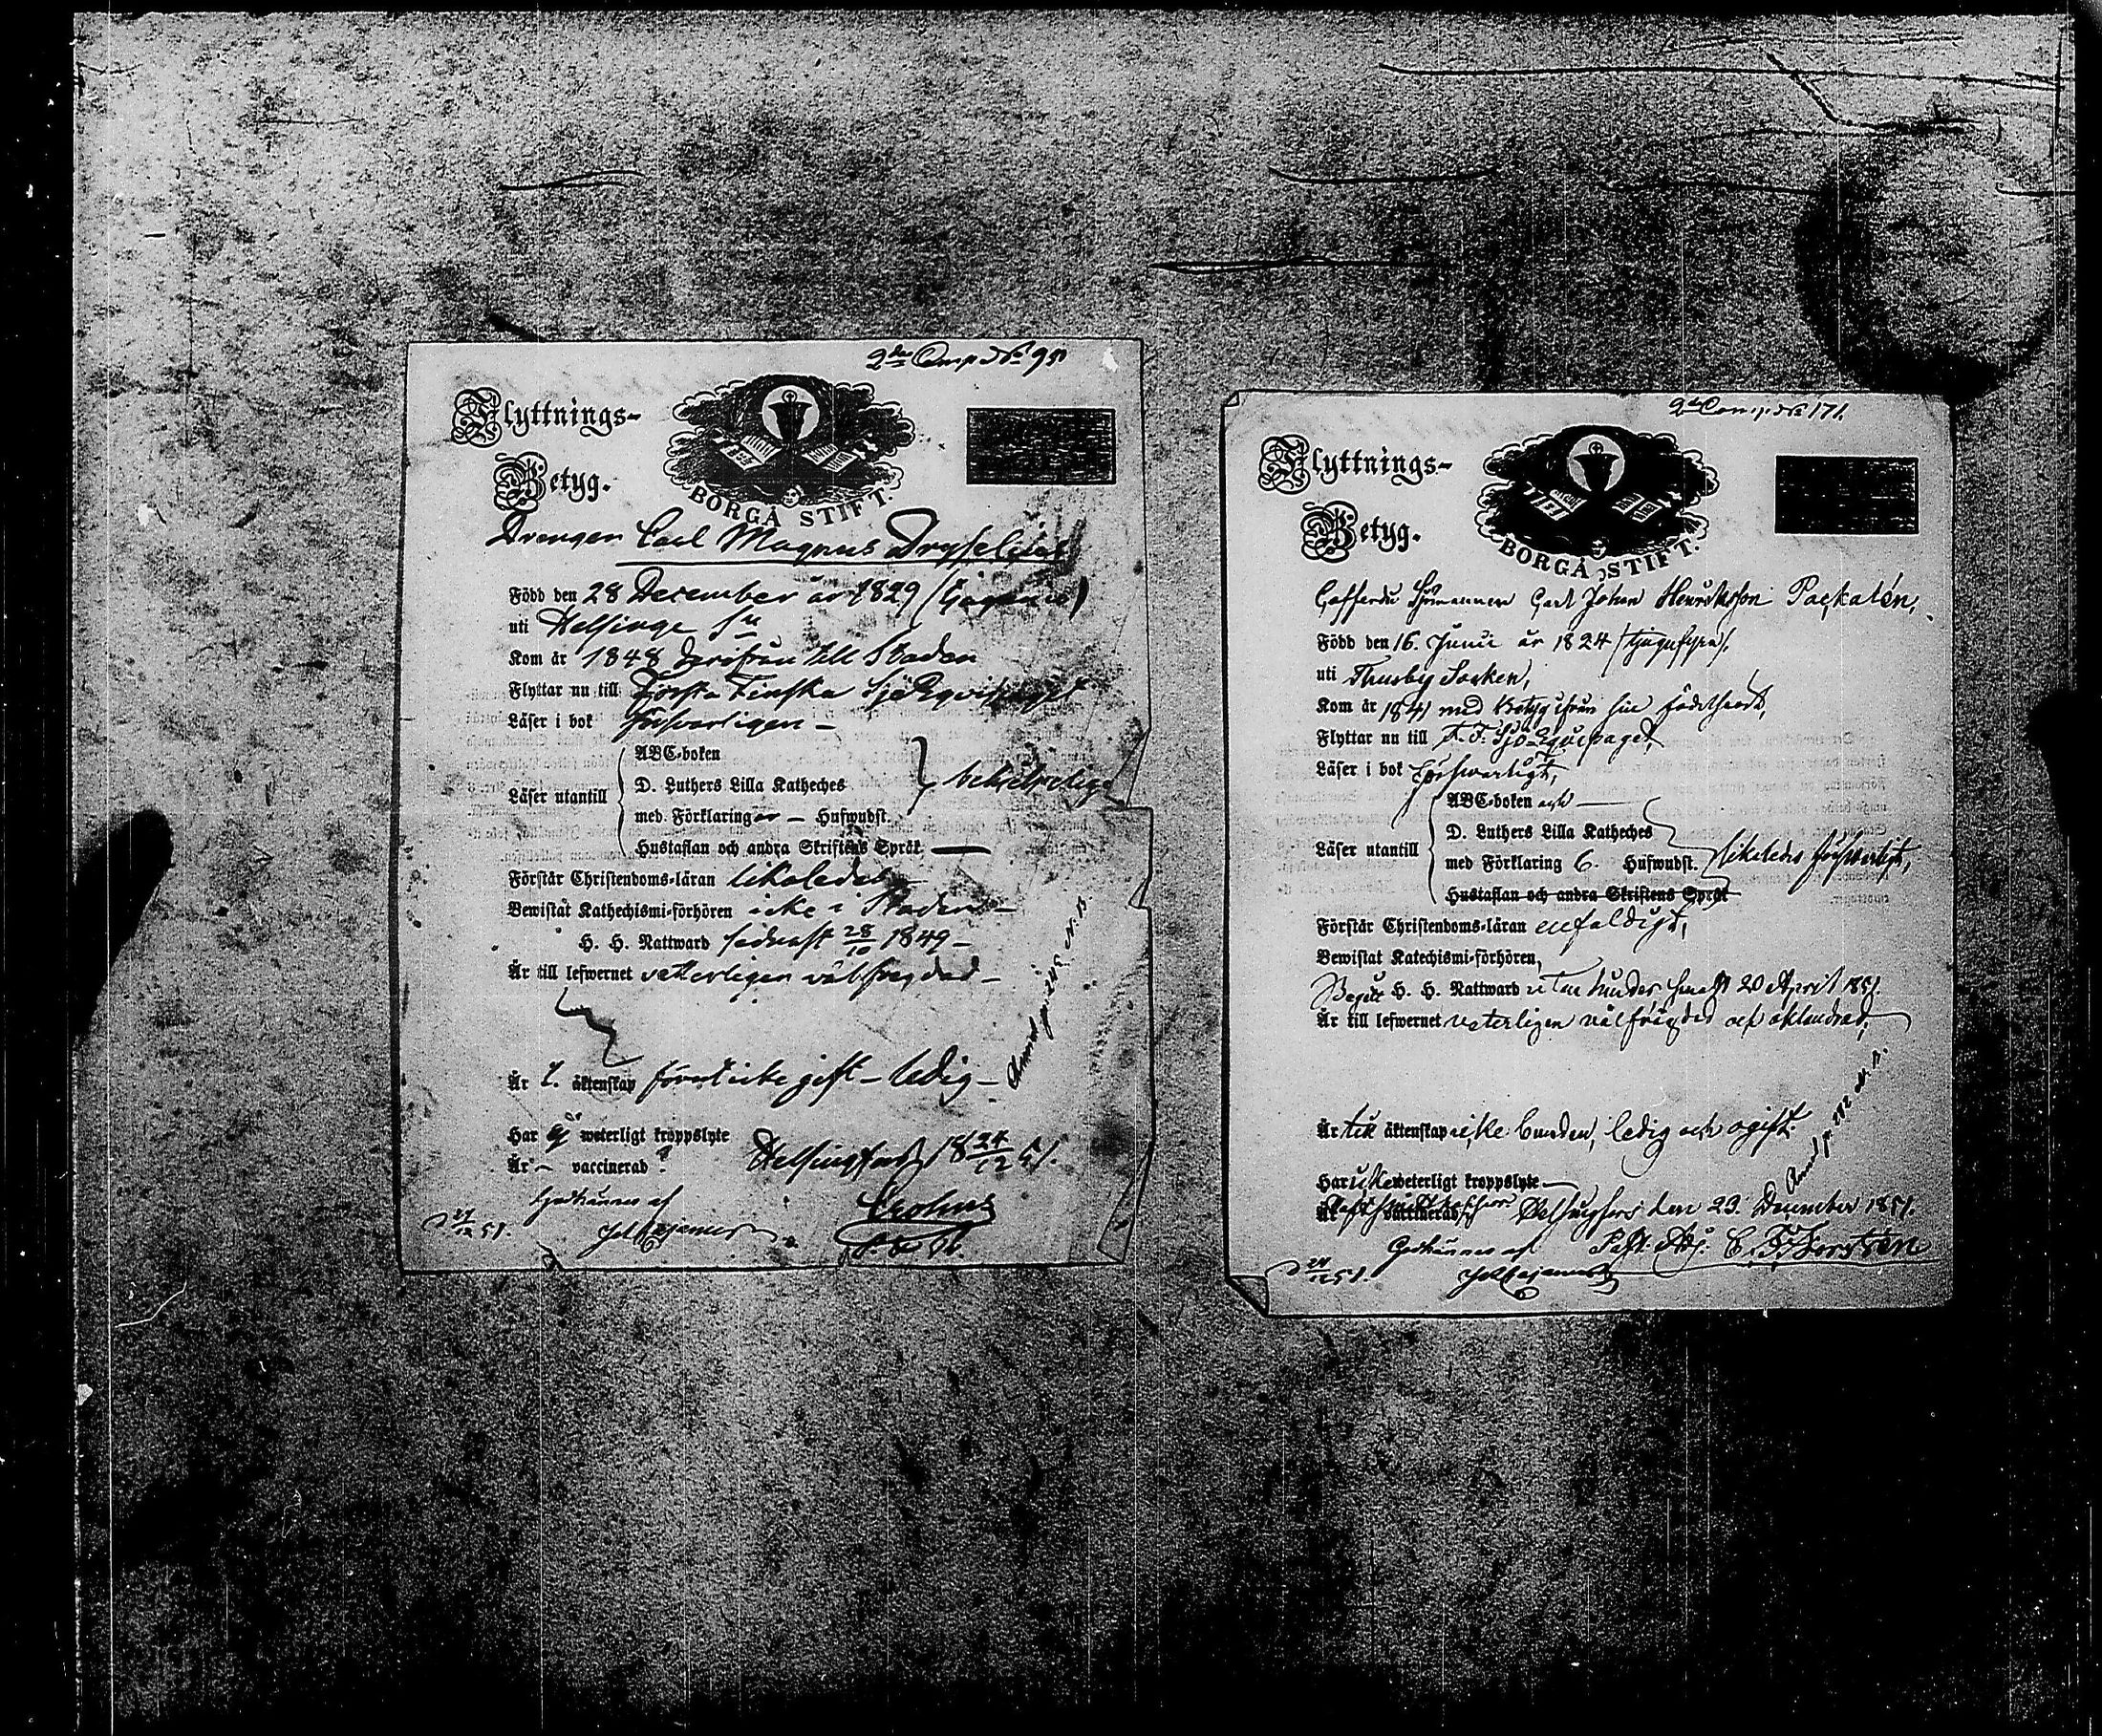 2dra Comp No 90
Flyttnings-
Betyg.
BORGÅ STIFT.
Drengen Carl Magnus
Född den 28 December år 1829
uti Helsinge Sn
Kom år 1848 derifrån till Staden
Flyttar nu till Första Finska Sjö
Läser i bok försvarligen —
ABC-boken
D. Luthers Lilla Katheches
Läser utantill
med Förklaringar — Hufwudst.
Hustaflan och andra Skriftens Språk
Förstår Christendoms-läran likaledes
Bewistat Kathechismi-förhören icke i Staden —
H. H. Nattward sednast 28/10 1849 —
Är till lefwernet vetterligen välfregdad —
Är t. äktenskap förut icke gift — ledig —
Har ej weterligt kroppslyte
Är — vaccinerad ?
Helsingfors 18 24/12 51.
Godkännes af
27/12 51.
2dra Comp. No 171.
Flyttnings-
Betyg.
BORGÅ STIFT.
Carl Johan Henricksson Packalén,
Född den 16. Junii år 1824 /tjugufyra/.
uti Thusby Socken,
Kom år 1841 med Betyg ifrån sin födelseort,
Flyttar nu till F. F. Sjö-Equipaget,
Läser i bok försvarligt,
ABC-boken och
D. Luthers Lilla Katheches
Läser utantill
med Förklaring 6. Hufwudst. likaledes försvarligt,
Hustaflan och andra Skriftens Språk
Förstår Christendoms-läran enfaldigt,
Bewistat Katechismi-förhören,
Begått H. H. Nattward 20 April 1851.
Är till lefwernet veterligen välfrägdad och oklandrad,
Är till äktenskap icke bunden, ledig och ogift.
Har icke weterligt kroppslyte
vaccinerad
Helsingfors den 23. December 1851.
Godkännes af
24/12 51.